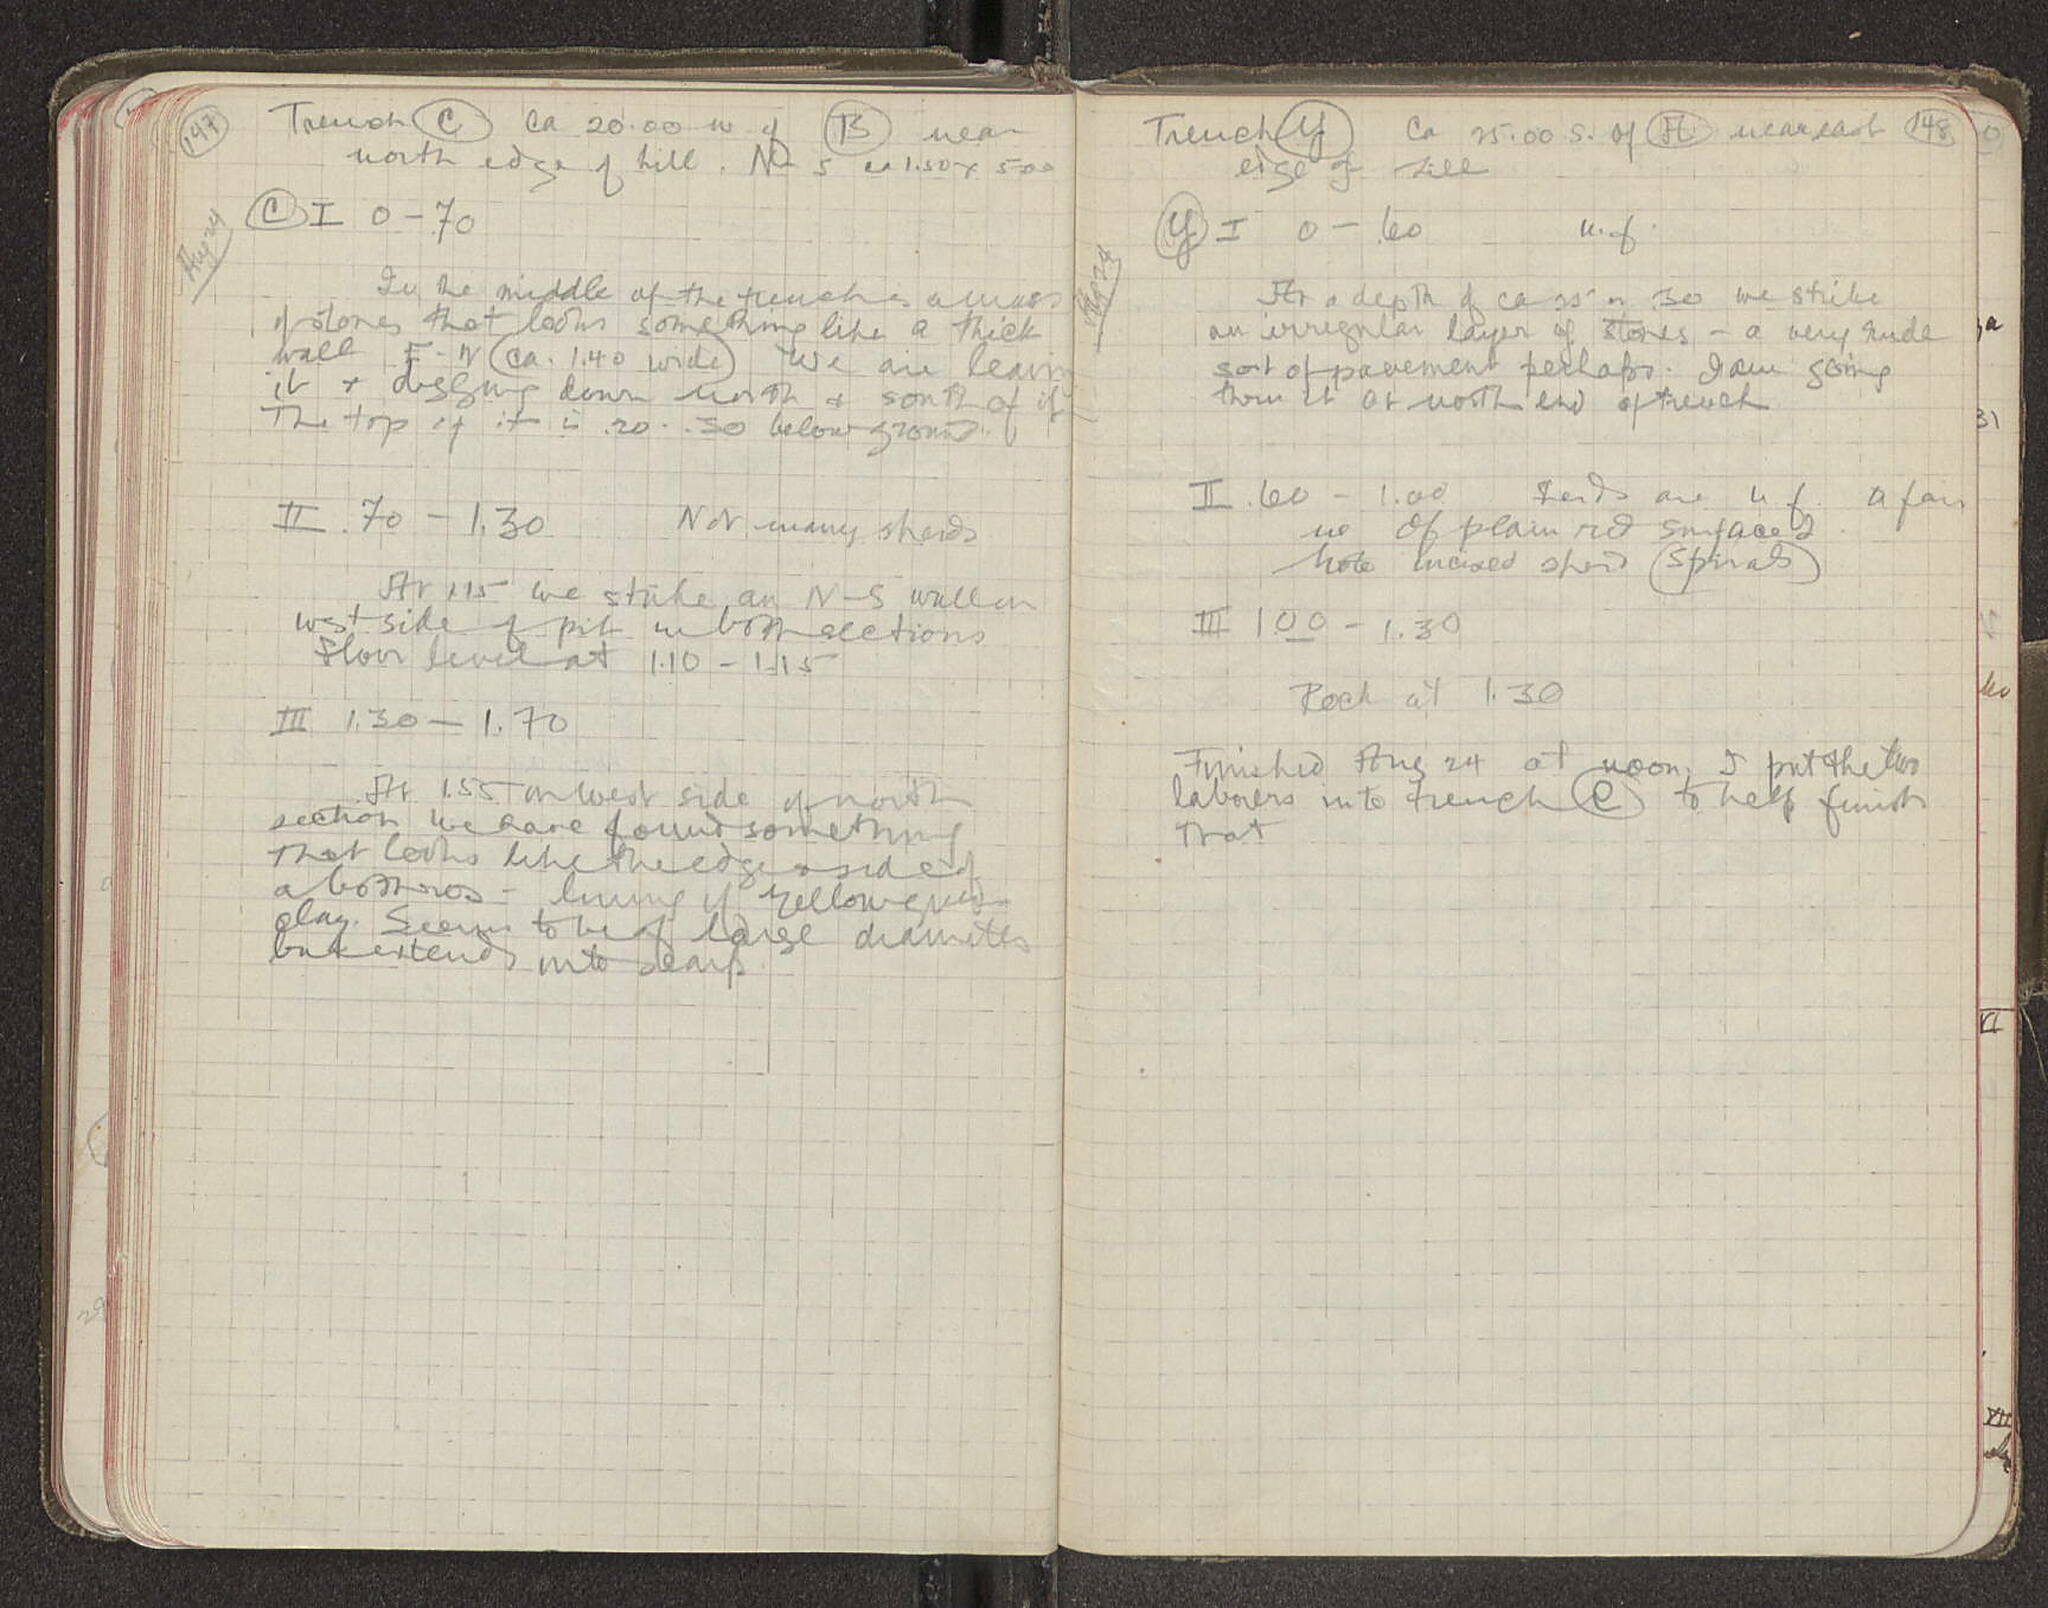 147
Trench C Ca 20.00 W of B near
north edge of hill. N-S ca 1.50 x 5.00
Aug 24
C I 0 - 70
In the middle of the trench is a mass
of stones that looks something like a thick
wall E-W (ca. 1.40 wide) We are leaving
it + digging down north + south of it
The top of it is .20 - .30 below ground.
II .70 - 1.30 Not many sherds
At 1.15 we strike an N-S wall on
west side of pit in both sections
Floor level at 1.10 - 1.15
III 1.30 - 1.70
At 1.55 on west side of north
section we have found something
that looks like the edge + side of
a bothros - lining of yellow
clay. Seems to be of large diameter
but extends into scarp.
Trench Y Ca 25.00 S. of A near east 148
edge of hill
Aug 24
Y I 0 - .60 u.f.
At a depth of ca 25 or .30 we strike
an irregular layer of stones - a very rude
sort of pavement perhaps. I am going
thru it at north end of trench
II .60 - 1.00 Sherds are u f. a fair
no of plain red surfaced.
Note incised sherd (Spirals)
III 1.00 - 1.30
Rock at 1.30
Finished Aug 24 at noon. I put the two
laborers into trench C to help finish
that
31
VI
VII